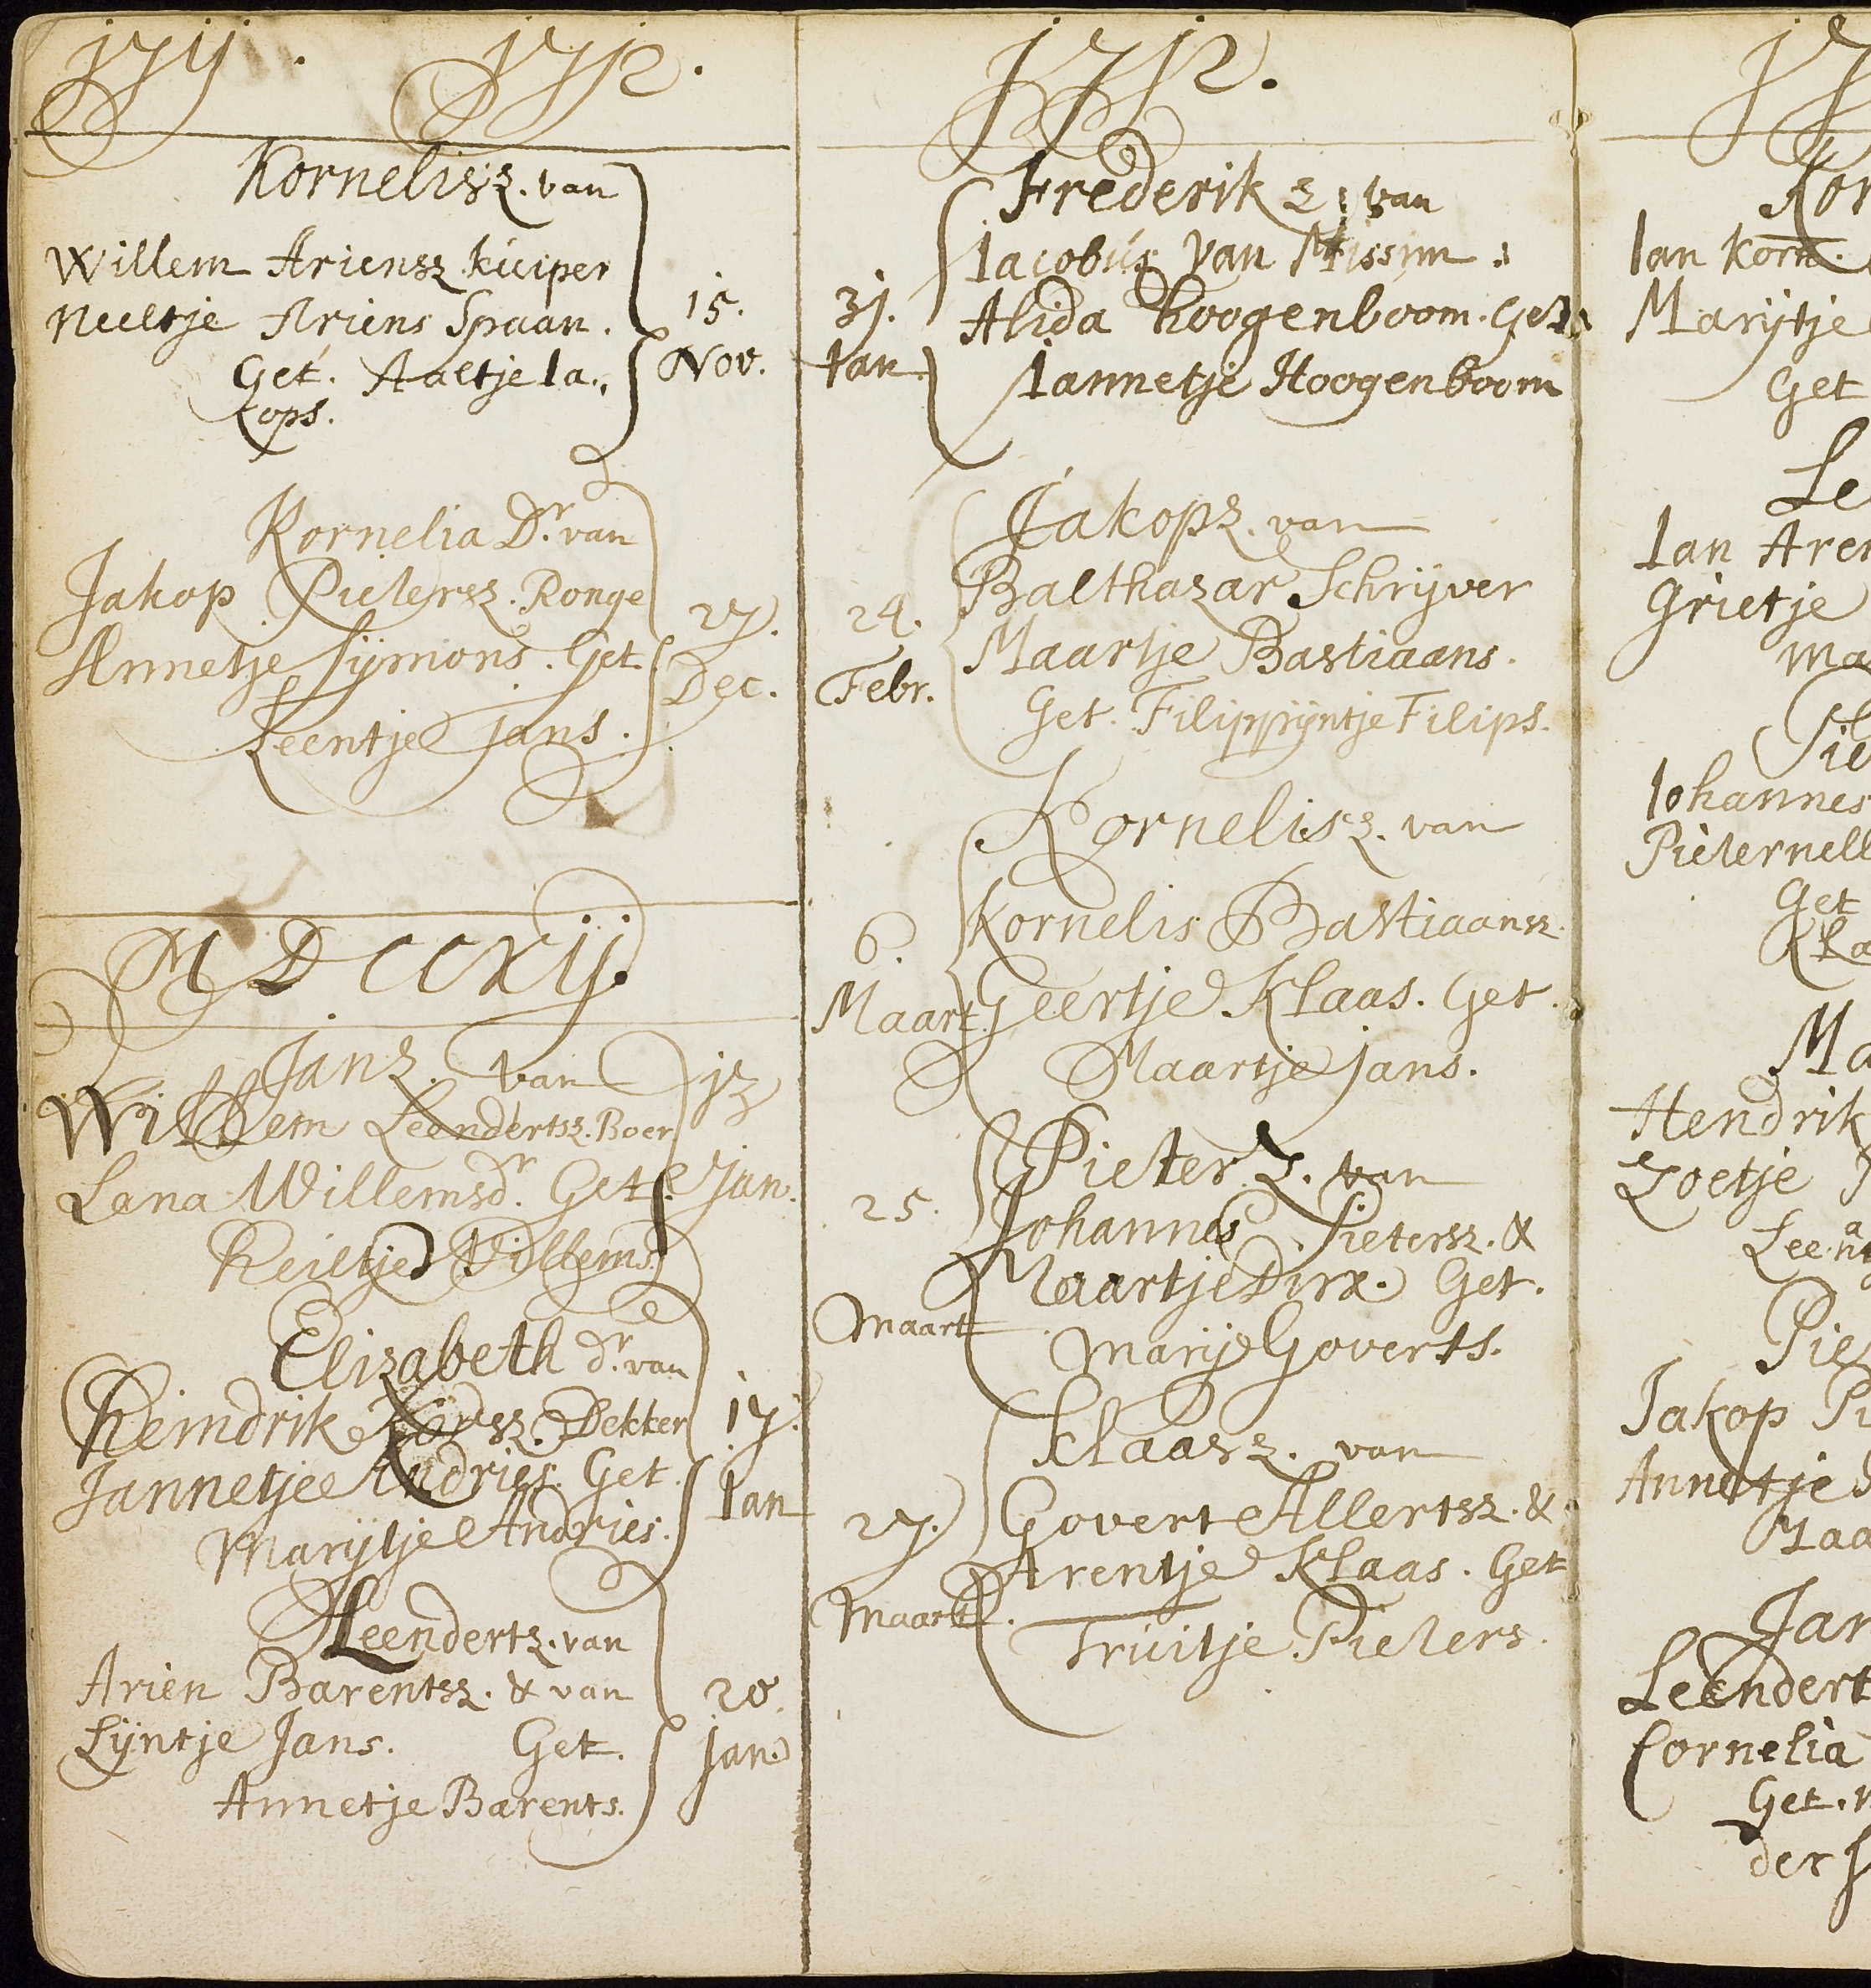 1711. 1712.
Kornelis z. van
Willem Ariensz. kuiper
Neeltje Ariens Spaan.
Get. Aaltje Ia-
cops.
15.
Nov.
Kornelia Dr. van
Jakop Pietersz. Ronge
Annetje Sijmons. Get.
Leentje Jans.
27.
Dec.
MDCCXIJ.
Jan z. van
Willem Leendertsz. Boer
Lana Willemsdr. Get.
Willems.
13
Jan.
Elizabeth dr. van
Heindrik Dekker
Jannetje Andries. Get.
Marijtje Andries.
17.
Ian
Leendert z. van
Arien Barentsz. & van
Lijntje Jans. Get.
Annetje Barents.
20.
Jan.
1712.
Frederik z. van
Iacobus van
Alida Hoogenboom. Get.
Iannetje Hoogenboom
31.
Ian.
Jakop z. van
Balthazar Schrijver
Maartje Bastiaans.
Get. Filippijntje Filips.
24.
Febr.
Kornelis z. van
Kornelis Bastiaansz.
Geertje Klaas. Get.
Maartje Jans.
6.
Maart.
Pieter z. van
Johannes Pietersz. &
Maartje Dirx. Get.
Marije Goverts.
25.
Maart
Klaas z. van
Govert Allertsz. &
Arentje Klaas. Get
Truitje Pieters.
27.
Maart.
17
Kor
Ian Korn.
Marijtje
Get
Le
Ian Aren
Grietje
Ma
Pie
Iohannes
Pieternell
Get
Kla
Ma
Hendrik
Zoetje
Pie
Jakop Pi
Annetje
Maa
Jan
Leendert
Cornelia
Get.
der